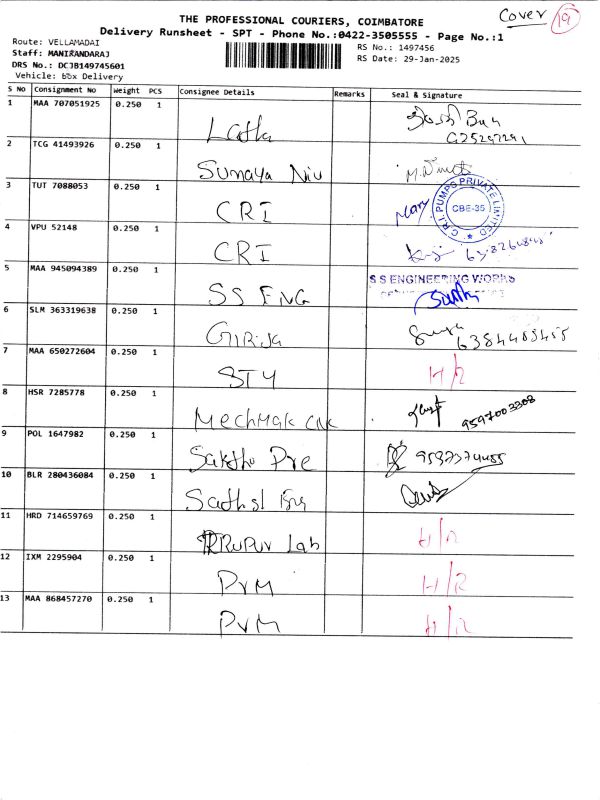 Cover 19
THE PROFESSIONAL COURIERS, COIMBATORE
Delivery Runsheet - SPT - Phone No.:0422-3505555 - Page No.:1
Route: VELLAMADAI
Staff: MANIKANDARAJ
DRS No.: DCJB149745601
Vehicle: box Delivery
RS No.: 1497456
RS Date: 29-Jan-2025
S No Consignment No Weight PCS Consignee Details Remarks Seal & Signature
1 MAA 707051925 0.250 1 Latha
2 TCG 41493926 0.250 1 Sumaya Niv
3 TUT 7088053 0.250 1 CRI
C.R.I. PUMPS PRIVATE LIMITED CBE-35
4 VPU 52148 0.250 1 CRI
5 MAA 945094389 0.250 1 SS ENG
S S ENGINEERING WORKS
6 SLM 363319638 0.250 1 Girija
7 MAA 650272604 0.250 1 STY H/R
8 HSR 7285778 0.250 1 Mechmak 9597003308
9 POL 1647982 0.250 1
10 BLR 280436084 0.250 1
11 HRD 714659769 0.250 1 Lab H/R
12 IXM 2295904 0.250 1 PVM H/R
13 MAA 868457270 0.250 1 PVM H/R